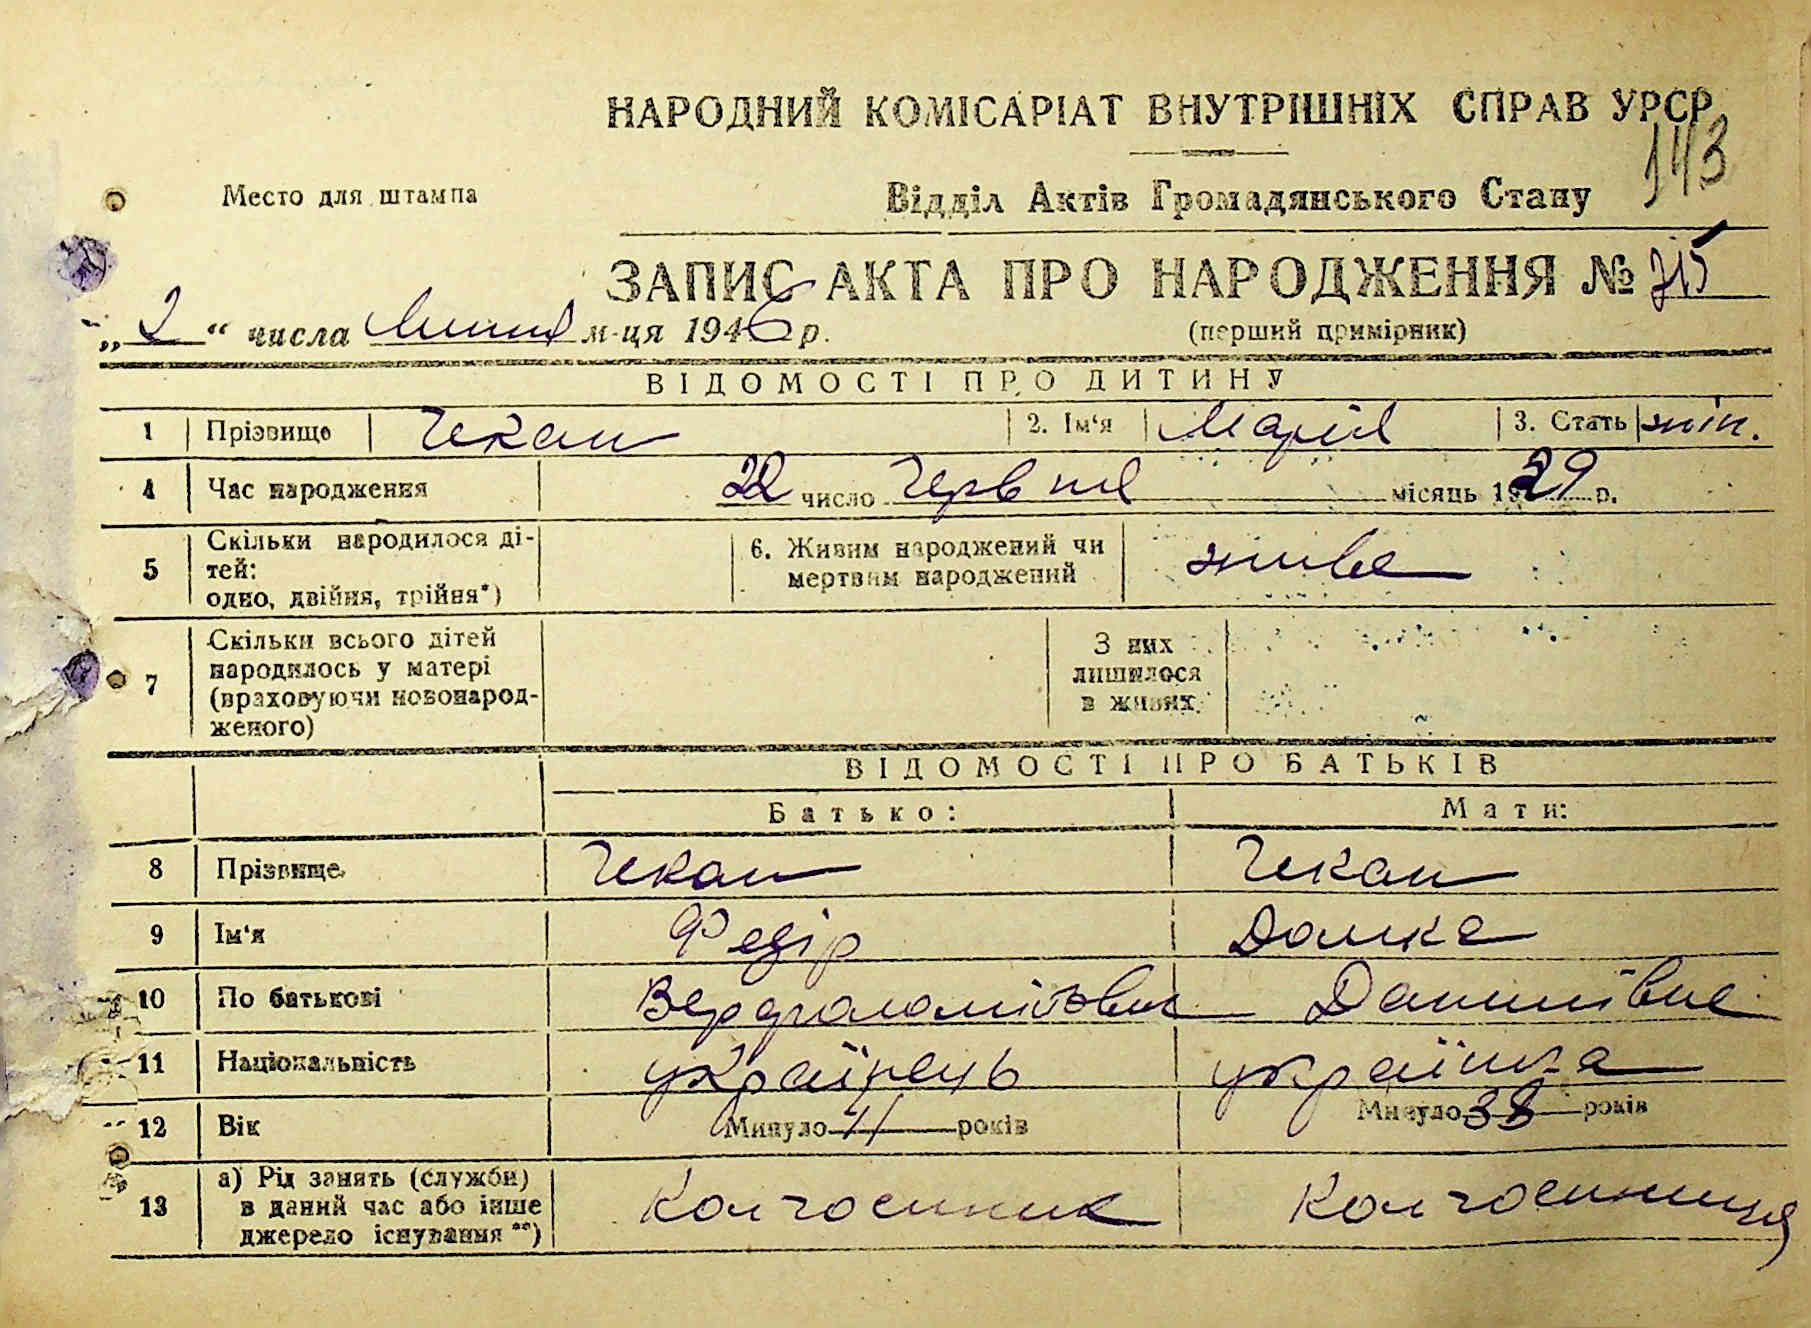 НАРОДНИЙ КОМІСАРІАТ ВНУТРІШНІХ СПРАВ УРСР
143
Место для штампа
Відділ Актів Громадянського Стану
ЗАПИС АКТА ПРО НАРОДЖЕННЯ № 215
„ 2 “ числа Липня м-ця 1946 р.
(перший примірник)
ВІДОМОСТІ ПРО ДИТИНУ
1 Прізвище Чекан 2. Ім‘я Марія 3. Стать жін.
4 Час народження 22 число Червня місяць 1929 р.
5 Скільки народилося ді-
тей:
одно, двійня, трійня*)
6. Живим народжений чи
мертвим народжений
жива
7 Скільки всього дітей
народилось у матері
(враховуючи новонарод-
женого)
З них
лишилося
в живих
ВІДОМОСТІ ПРО БАТЬКІВ
Батько: Мати:
8 Прізвище Чекан Чекан
9 Ім‘я Федір Домка
10 По батькові Варфоломійович Данилівна
11 Національність українець українка
12 Вік Минуло 41 років Минуло 38 років
13 а) Рід занять (служби)
в даний час або інше
джерело існування **)
Колгоспник Колгоспниця